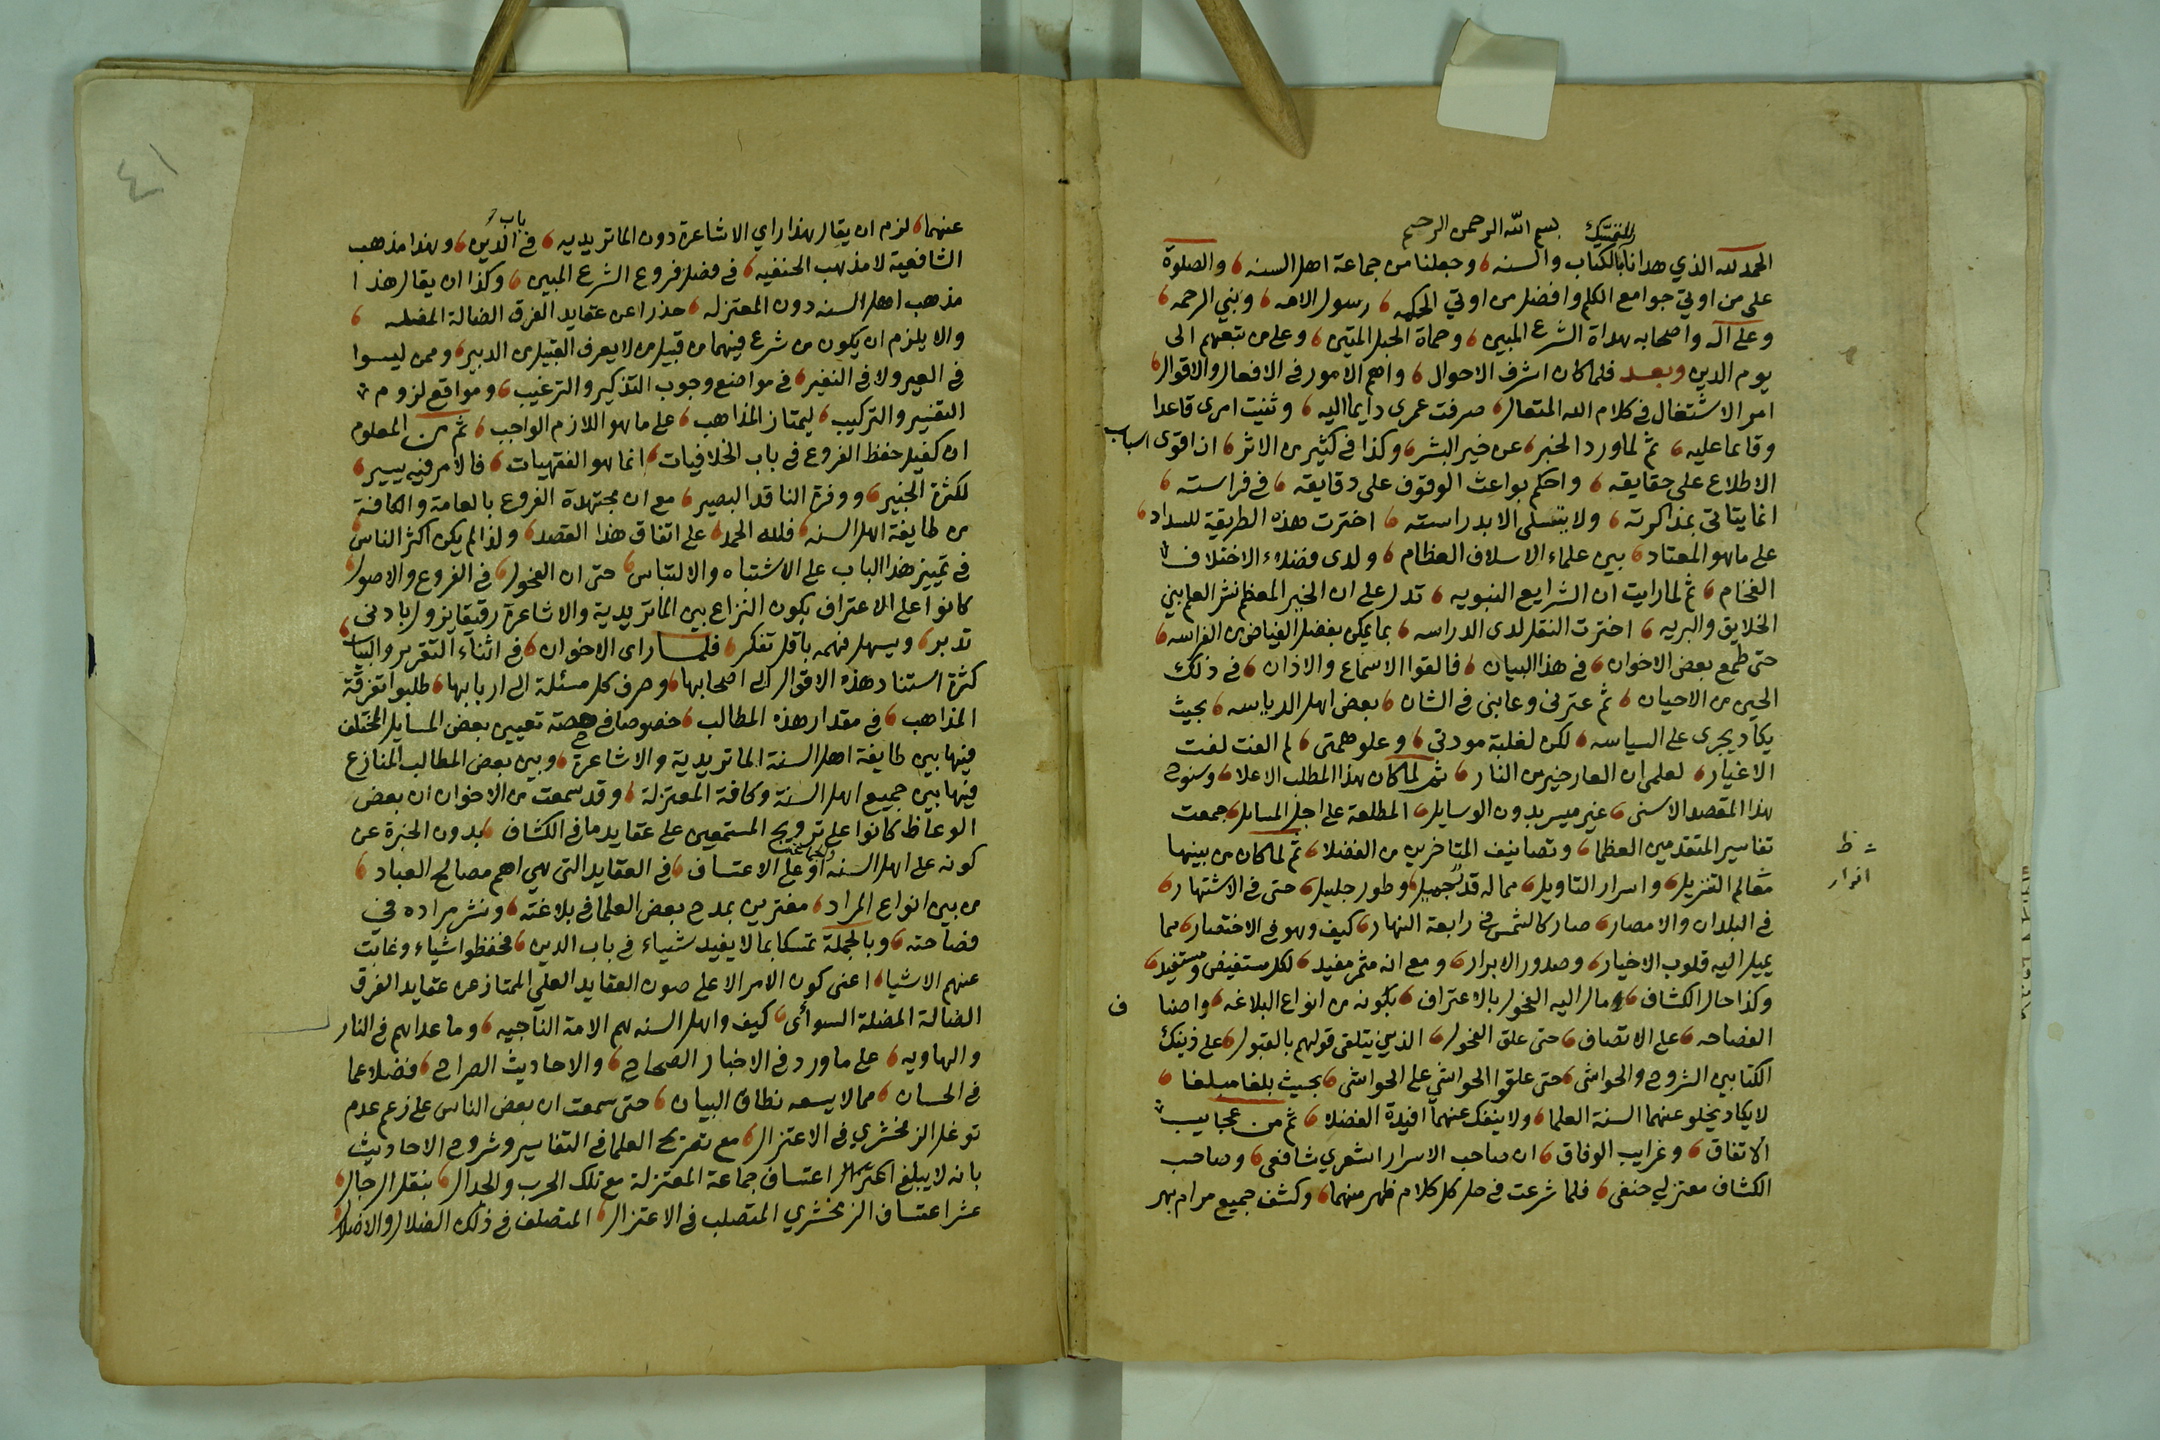 بسم الله الرحمن الرحيم
الحمد لله الذي هدانا بالكتاب والسنه، وجعلنا من جماعة اهل السنه، والصلوة
على من اوتي جوامع الكلم وافضل من اوتي الحكمه، رسول الامه، ونبي الرحمه،
وعلى آله واصحابه هداة الشرع المبين، وحماة الحبل المتين، وعلى من تبعهم الى
يوم الدين وبعد فلما كان اشرف الاحوال، واهم الامور في الافعال والاقوال،
امر الاشتغال في كلام الله المتعال، صرفت عمري دايما اليه، وثنيت امري قاعدا
وقائما عليه، ثم لما ورد الخبر، عن خير البشر، وكذا في كثير من الاثر، ان اقوى اسباب
الاطلاع على حقايقه، واحكم بواعث الوقوف على دقايقه، في فراسته،
انما يتاتى بمذاكرته، ولا يتسلى الا بدراسته، اخترت هذه الطريقة للسداد،
على ما هو المعتاد، بين علماء الاسلاف العظام، ولدى فضلاء الاختلاف
الفخام، ثم لما رايت ان الشرايع النبويه، تدل على ان الخير المعظم نشر العلم بين
الخلايق والبريه، اخترت النقل لدى الدراسه، بما يمكن بفضل الفياض من الفراسه،
حتى طمع بعض الاخوان، في هذا البيان، فالقوا الاسماع والاذان، في ذلك
الحين من الاحيان، ثم عترنى وعابنى في الشان، بعض اهل الدياسه، بحيث
يكاد يجرى على السياسه، لكن لغلبة مودتي، وعلو همتى، لم الفت لفت
الاغيار، لعلمي ان العار خير من النار، ثم لما كان هذا المطلب الاعلا، وسنوح
هذا المقصد الاسنى، غير ميسر بدون الوسايل، المطلعة على اجل المسايل، جمعت
تفاسير المتقدمين العظما، وتصانيف المتاخرين من الفضلا، ثم لما كان من بينها
معالم التنزيل، واسرار التاويل، مما له قدر جميل، وطور جليل، حتى في الاشتهار،
في البلدان والامصار، صار كالشمس في رابعة النهار، كيف وهو في الاختصار، مما
يميل اليه قلوب الاخيار، وصدور الابرار، ومع انه مثمر مفيد، لكل مستفيض ومستفيد،
وكذا حال الكشاف، ومال اليه الفحول بالاعتراف، بكونه من انواع البلاغه، واصناف
الفصاحه، على الاتصاف، حتى علق الفحول، الذين يتلقى قولهم بالقبول، على ذينك
الكتابين الشروح والحواشي، حتى علقوا الحواشي على الحواشي، بحيث بلغا مبلغا،
لا يكاد يخلو عنهما السنة العلما، ولا ينفك عنهما افيدة الفضلا، ثم من عجايب
الاتفاق، وغرايب الوفاق، ان صاحب الاسرار اشعري شافعي، وصاحب
الكشاف معتزلي حنفي، فلما شرعت في حل كل كلام ظهر منهما، وكشف جميع مرام بهر
ظ
انوار
عنهما، لزم ان يقال هذا راي الاشاعرة دون الماتريديه، في باب الدين، وهذا مذهب
الشافعية لا مذهب الحنفيه، في فصل فروع الشرع المبين، وكذا ان يقال هذا
مذهب اهل السنه دون المعتزله، حذرا عن عقايد الفرق الضالة المضله،
والا يلزم ان يكون من شرع فيهما من قبيل من لا يعرف القبيل من الدبير، وممن ليسوا
في العير ولا في النفير، في مواضع وجوب التذكير والترغيب، ومواقع لزوم
التفسير والتركيب، ليمتاز المذاهب، على ما هو اللازم الواجب، ثم من المعلوم
ان كفيل حفظ الفروع في باب الخلافيات، انما هو الفقهيات، فالامر فيه يسير،
لكثرة الخبير، ووفرة الناقد البصير، مع ان مجتهدة الفروع بالعامة والكافة
من طايفة اهل السنه، فلله الحمد، على اتفاق هذا القصد، ولذا لم يكن اكثر الناس
في تمييز هذا الباب على الاشتباه والالتباس، حتى ان الفحول، في الفروع والاصول،
كانوا على الاعتراف بكون النزاع بين الماتريدية والاشاعرة رقيقا يزول بادنى
تدبر، ويسهل فهمه باقل تفكر، فلما راى الاخوان، في اثناء التقرير والبيان،
كثرة استناد هذه الاقوال الى اصحابها، وصرف كل مسئلة الى اربابها، طلبوا تفرقة
المذاهب، في مقدار هذه المطالب، خصوصا في حصة تعيين بعض المسايل المختلف
فيها بين طايفة اهل السنة الماتريدية والاشاعرة، وبين بعض المطالب المنازع
فيها بين جميع اهل السنة وكافة المعتزلة، وقد سمعت من الاخوان ان بعض
الوعاظ كانوا على ترويج المستمعين على عقايد ما في الكشاف، بدون الخبرة عن
كونه على اهل السنه او على الاعتساف، في العقايد التي هي اهم مصالح العباد،
من بين انواع المراد، مغترين بمدح بعض العلما في بلاغته، ونشر مراده في
فصاحته، وبالجملة تمسكا بما لا يفيد شياء في باب الدين، فحفظوا شياء وغابت
عنهم الاشيا، اعنى كون الامر الاعلى صون العقايد العلى الممتاز عن عقايد الفرق
الضالة المضلة السوأى، كيف واهل السنه هم الامة الناجيه، وما عداهم في النار
والهاويه، على ما ورد في الاخبار الصحاح، والاحاديث الصراح، فضلا عما
في الحسان، مما لا يسعه نطاق البيان، حتى سمعت ان بعض الناس على زعم عدم
توغل الزمخشري في الاعتزال، مع تصريح العلما في التفاسير وشروح الاحاديث
بانه لا يبلغ اعتساف جماعة المعتزلة مع تلك الحرب والجدال، بنقل الرجال،
عشر اعتساف الزمخشري المتصلب في الاعتزال، المتصلف في ذلك الضلال والاضلال
٤١